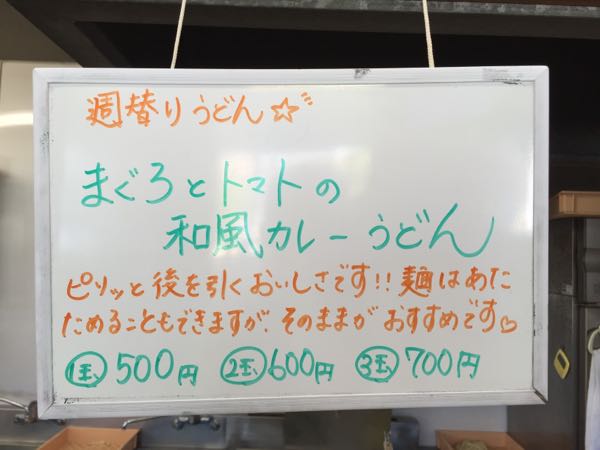 週替りうどん☆
まぐろとトマトの
和風カレーうどん
ピリッと後を引くおいしさです!! 麺はあた
ためることもできますが、そのままがおすすめです♡
1玉 500円 2玉 600円 3玉 700円